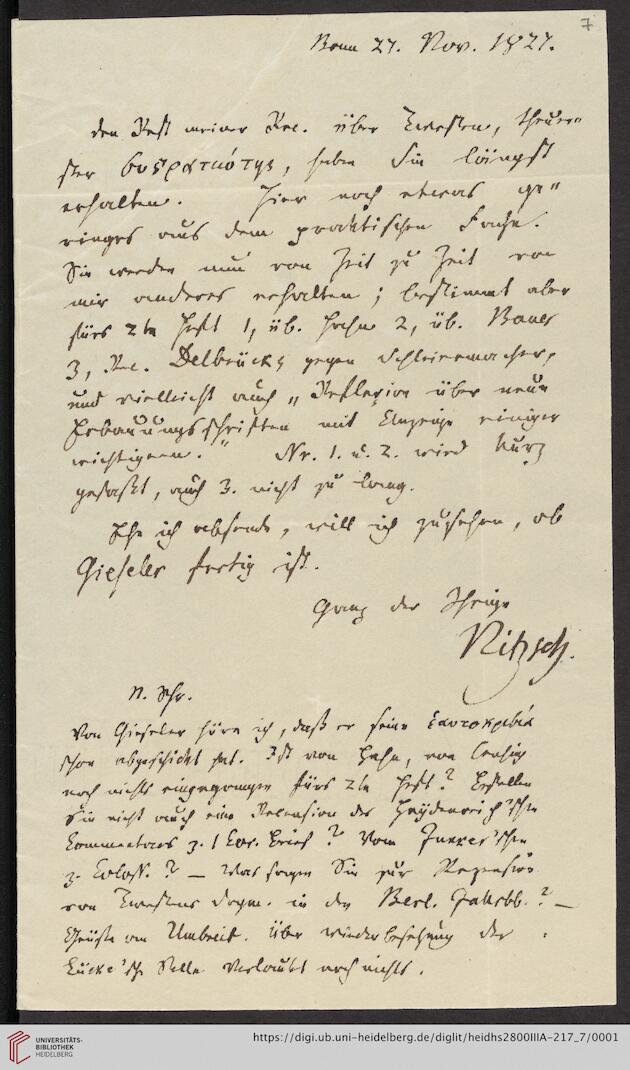 7
Bonn 27. Nov. 1827.
den Rest meiner Rec. über Twesten, theuer-
ster συστρατιώτης, haben Sie längst
erhalten. Hier noch etwas ge-
ringes aus dem praktischen Fache.
Sie werden nun von Zeit zu Zeit von
mir anderes erhalten; bestimmt aber
fürs 2te Heft 1, üb. Hahn 2, üb. Baur
3, Rec. Delbrücks gegen Schleiermacher,
und vielleicht auch „Reflexion über neue
Erbauungsschriften mit Anzeige einiger
wichtigern." Nr. 1. u. 2. wird kurz
gefaßt, auch 3. nicht zu lang.
Ehe ich absende, will ich zusehen, ob
Gieseler fertig ist.
Ganz der Ihrige
Nitzsch.
N. Schr.
Von Gieseler höre ich, daß er seine
schon abgeschickt hat. Ist von Hahn, von
noch nichts eingegangen fürs 2te Heft? Bestellen
Sie nicht auch eine Recension des Heydenreich'schen
Commentars z. 1 Cor. Brief? Vom
z. Coloss.? — Was sagen Sie zur Rezension
von Twestens Dogm. in den Berl. Jahrbb.? —
Grüße an Umbreit. Über Wiederbesetzung der
Lücke'schen Stelle verlautet noch nichts.
UNIVERSITÄTS-
BIBLIOTHEK
HEIDELBERG
https://digi.ub.uni-heidelberg.de/diglit/heidhs2800IIIA-217_7/0001